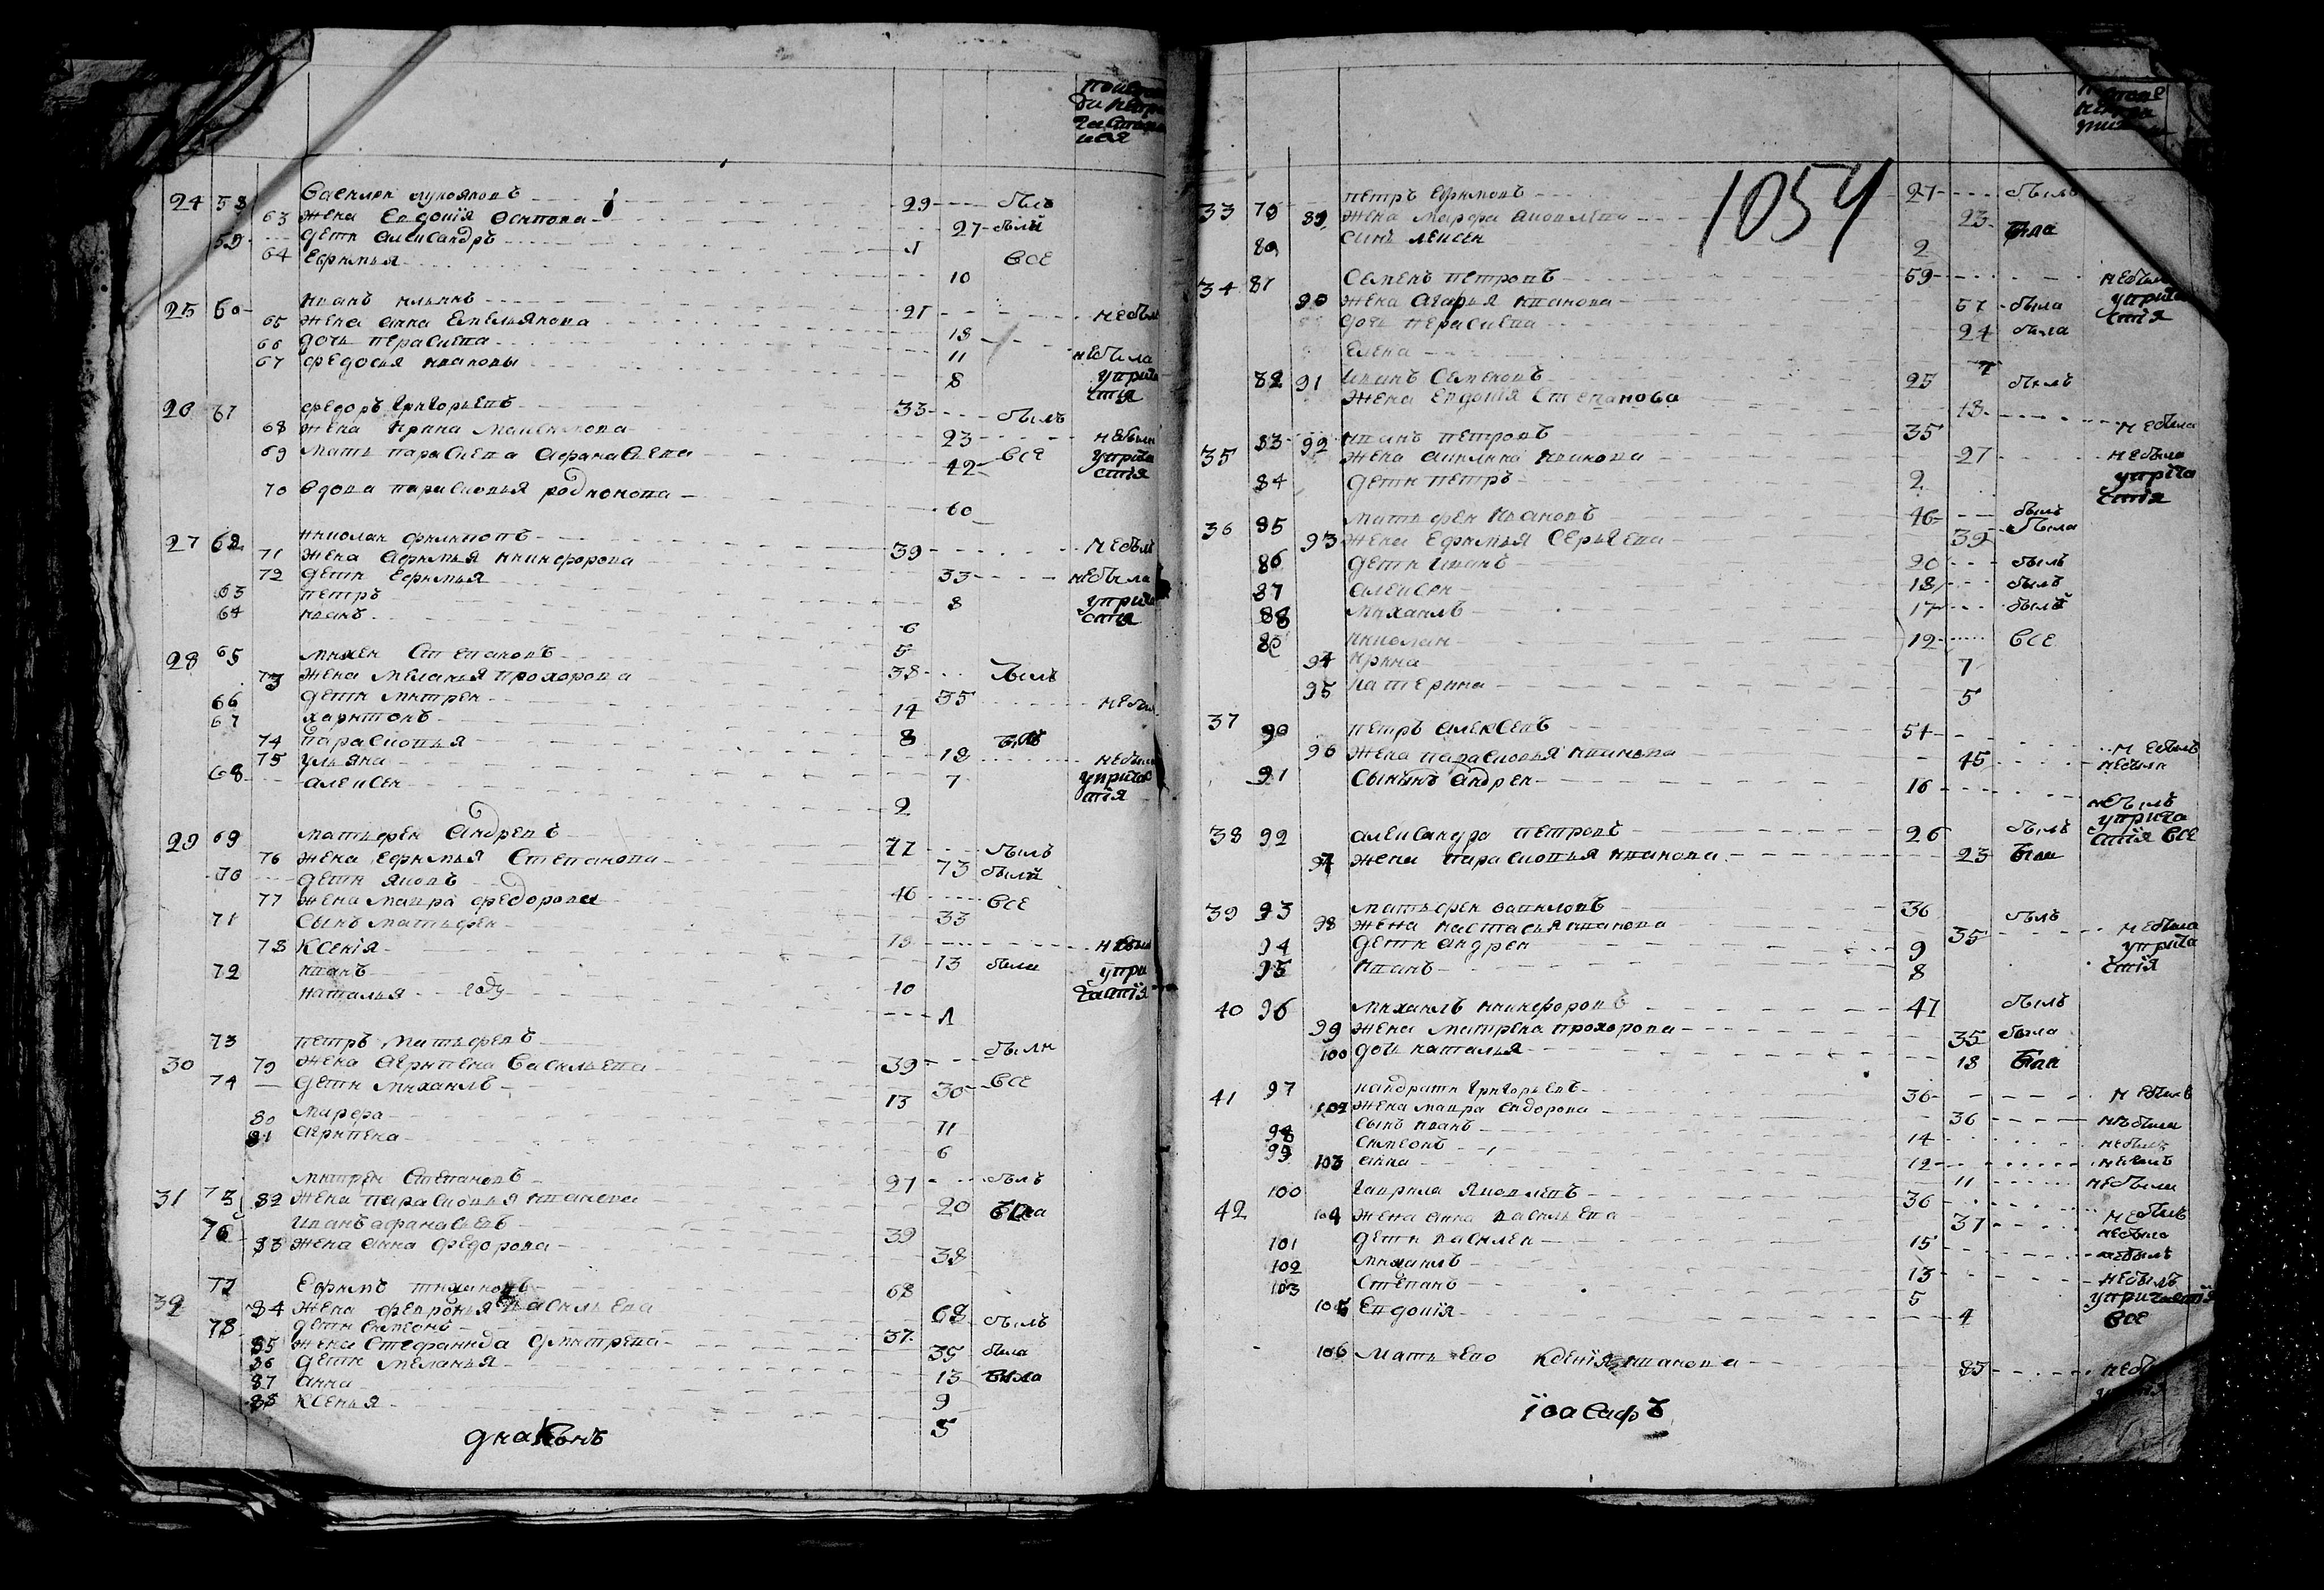 24 58 Василеи лукояновъ 29 былъ
63 жена Евдокія Осипова 27 была
59 дети Александръ 1 все
64 Ефимья 10
25 60 иванъ ильинъ 21 небылъ
65 жена анна Емельянова 18
66 дочь Параскева 11 небыла
67 федосья ивановы 8 упричастія
26 61 федоръ григорьевъ 33 былъ
68 жена Ирина Максимова 23 небыла
69 мать параскева афанасьева 42 все упричастія
70 вдова парасковья родионова 60
27 62 николаи филиповъ 39 небылъ
71 жена афимья никифорова 33 небыла
72 дети Ефимья 8 упричастія
63 петръ 6
64 иванъ 5
28 65 михеи Степановъ 38 былъ
73 жена меланья прохорова 35 небыла
66 дети митреи 14
67 харитонъ 8
74 парасковья 12 небыла
75 ульяна 7 упричастія
68 алексеи 2
29 69 матьфеи Андревъ 77 былъ
76 жена ефимья Степанова 73 была
70 дети яковъ 46 все
77 жена мавра федорова 33
71 сынъ матьфеи
78 Ксенія 13 были
72 иванъ 10 упричастія
наталья году 1
30 73 петръ матьфевъ 39 были
79 жена агрипена васильева 30 все
74 дети михаилъ 13
80 марфа 11
81 агрипена 6
31 75 митреи степановъ 21 былъ
82 жена парасковья иванова 20 была
76 иванъ афанасьевъ 39
83 жена анна федорова 38
32 77 Ефимъ тихановъ 68
84 жена февронья васильева 68 былъ
78 дети симеонъ 37
85 жена Стефанида дмитрева 35 была
86 дети меланья 13 была
87 анна 9
88 ксенья 5
диаконъ
1054
33 79 петръ Ефимовъ 27 былъ
89 жена марфа яковлева 23 была
80 синъ алексеи 2
34 81 Семенъ петровъ 59 небылъ
90 жена агафья иванова 57 была упричастія
дочь Параскева 24 была
Елена 7
82 иванъ Семеновъ 25 былъ
91 жена Евдокія Степанова 18 небыла
35 83 иванъ петровъ 35
92 жена акилина иванова 27 небыла
84 дети петръ 2 упричастія
36 85 матьфеи ивановъ 46 былъ
93 жена ефимья Серьгева 39 была
86 дети иванъ 20 былъ
87 алексеи 18 былъ
88 михаилъ 17 былъ
89 николаи 12 все
94 ирина 7
95 катерина 5
37 90 петръ алексевъ 51 небылъ
96 жена парасковья иванова 45 небыла
91 сынъ андреи 16 небылъ упричастія все
38 92 александра петровъ 26 былъ
97 жена парасковья иванова 23 была
39 93 матьфеи вавиловъ 36 былъ
98 жена настасья иванова 35 небыла
94 дети андреи 9 упричастія
95 иванъ 8
40 96 михаилъ никифоровъ 47 былъ
99 жена матрена прохорова 35 была
100 дочь наталья 18 была
41 97 кандрати григорьевъ 36 небылъ
102 жена мавра сидорова 36 небыла
98 сынъ иванъ 14 небылъ
99 симеонъ 12 небылъ
103 анна 11 небыла
42 100 гаврила яковлевъ 36 небылъ
104 жена анна васильева 37 небыла
101 дети василеи 15 небылъ
102 михаилъ 13 небылъ
103 степанъ 5 упричастія
105 Евдокія 4 все
106 мать ево ксенія иванова 85
іоасафъ